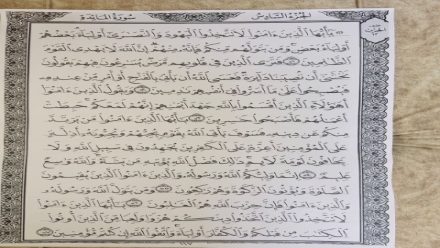 الجزء السادس سورة المائدة
يَٰٓأَيُّهَا ٱلَّذِينَ ءَامَنُوا۟ لَا تَتَّخِذُوا۟ ٱلْيَهُودَ وَٱلنَّصَٰرَىٰٓ أَوْلِيَآءَ بَعْضُهُمْ
أَوْلِيَآءُ بَعْضٍ وَمَن يَتَوَلَّهُم مِّنكُمْ فَإِنَّهُۥ مِنْهُمْ إِنَّ ٱللَّهَ لَا يَهْدِى ٱلْقَوْمَ
ٱلظَّٰلِمِينَ فَتَرَى ٱلَّذِينَ فِى قُلُوبِهِم مَّرَضٌ يُسَٰرِعُونَ فِيهِمْ يَقُولُونَ
نَخْشَىٰٓ أَن تُصِيبَنَا دَآئِرَةٌ فَعَسَى ٱللَّهُ أَن يَأْتِىَ بِٱلْفَتْحِ أَوْ أَمْرٍ مِّنْ عِندِهِۦ
فَيُصْبِحُوا۟ عَلَىٰ مَآ أَسَرُّوا۟ فِىٓ أَنفُسِهِمْ نَٰدِمِينَ وَيَقُولُ ٱلَّذِينَ ءَامَنُوٓا۟
أَهَٰٓؤُلَآءِ ٱلَّذِينَ أَقْسَمُوا۟ بِٱللَّهِ جَهْدَ أَيْمَٰنِهِمْ إِنَّهُمْ لَمَعَكُمْ حَبِطَتْ
أَعْمَٰلُهُمْ فَأَصْبَحُوا۟ خَٰسِرِينَ يَٰٓأَيُّهَا ٱلَّذِينَ ءَامَنُوا۟ مَن يَرْتَدَّ
مِنكُمْ عَن دِينِهِۦ فَسَوْفَ يَأْتِى ٱللَّهُ بِقَوْمٍ يُحِبُّهُمْ وَيُحِبُّونَهُۥٓ أَذِلَّةٍ
عَلَى ٱلْمُؤْمِنِينَ أَعِزَّةٍ عَلَى ٱلْكَٰفِرِينَ يُجَٰهِدُونَ فِى سَبِيلِ ٱللَّهِ وَلَا
يَخَافُونَ لَوْمَةَ لَآئِمٍ ذَٰلِكَ فَضْلُ ٱللَّهِ يُؤْتِيهِ مَن يَشَآءُ وَٱللَّهُ وَٰسِعٌ
عَلِيمٌ إِنَّمَا وَلِيُّكُمُ ٱللَّهُ وَرَسُولُهُۥ وَٱلَّذِينَ ءَامَنُوا۟ ٱلَّذِينَ يُقِيمُونَ
ٱلصَّلَوٰةَ وَيُؤْتُونَ ٱلزَّكَوٰةَ وَهُمْ رَٰكِعُونَ وَمَن يَتَوَلَّ ٱللَّهَ وَرَسُولَهُۥ
وَٱلَّذِينَ ءَامَنُوا۟ فَإِنَّ حِزْبَ ٱللَّهِ هُمُ ٱلْغَٰلِبُونَ يَٰٓأَيُّهَا ٱلَّذِينَ ءَامَنُوا۟
لَا تَتَّخِذُوا۟ ٱلَّذِينَ ٱتَّخَذُوا۟ دِينَكُمْ هُزُوًا وَلَعِبًا مِّنَ ٱلَّذِينَ أُوتُوا۟
ٱلْكِتَٰبَ مِن قَبْلِكُمْ وَٱلْكُفَّارَ أَوْلِيَآءَ وَٱتَّقُوا۟ ٱللَّهَ إِن كُنتُم مُّؤْمِنِينَ
١١٧